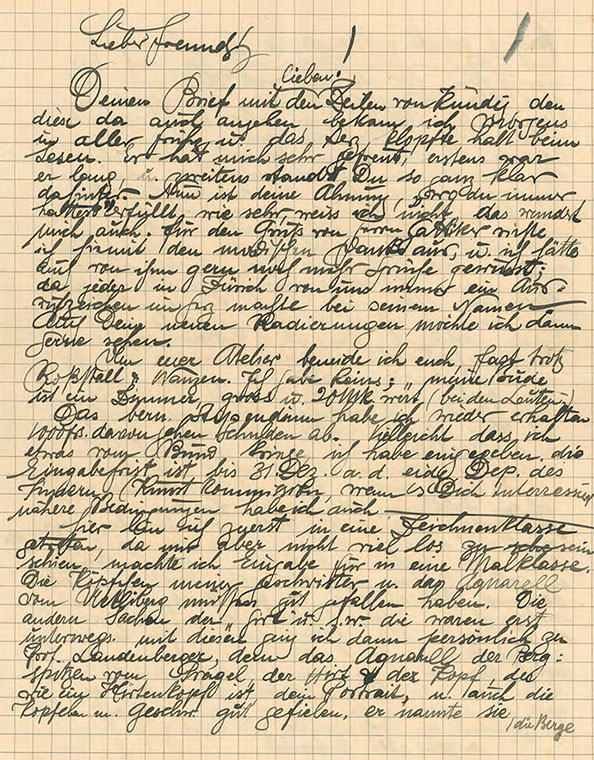 Lieber Freund!
lieben!
Deinen Brief mit den Zeilen von Kündig den
diese da auch angehen bekam ich
in aller früh, u. das Herz klopfte halt beim
Lesen. Er hat mich sehr gefreut, erstens war
er lang u. zweitens standest Du so ganz klar
dahinter. Nun ist deine Ahnung, wo du immer
hattest erfüllt, wie sehr, weiss ich nicht, das wundert
mich auch. Für den Gruss von
ich ihm mit den Dank aus, u. ich hätte
auch von ihm gern mehr gewusst;
da jeder in Zürich von uns immer ein Aus-
rufzeichen machte bei seinem Namen
Auch Deine neuen Radierungen möchte ich dann
gerne sehen.
Um euer Atelier beneide ich euch, fast trotz
Roßstall & Wanzen. Ich habe keins; "meine Bude
ist ein Zimmer, gross u. 20 Mk wert (bei den Leuten)
Das bern. Stipendium habe ich wieder erhalten
1000 fr. davon gehen Schulden ab. Vielleicht dass ich
etwas vom Bund kriege ich habe eingegeben. die
Eingabefrist ist bis 31 Dez. a. d. eidg. Dep. des
Innern (Kunst Kommission, wenn es Dich interressiert
nähere Bedingungen habe ich auch
Hier bin ich zuerst in eine Zeichnenklasse
getreten, da mir aber nicht viel los zu sein
schien, machte ich Eingabe für in eine Malklasse.
Die Köpfchen meiner Geschwister u. das Aquarell
vom Uetliberg müssen gut gefallen haben. Die
andern Sachen der "Hirt" u. s. w. die waren erst
unterwegs. mit diesen ging ich dann persönlich zu
Prof. Landenberger, denn das Aquarell der Berg-
spitzen vom Pragel, der Hirt & der Kopf, des
Hirtenkopf ist dein Portrait, u. auch die
Köpfchen m. Geschw. gut gefielen, er nannte sie
/die Berge